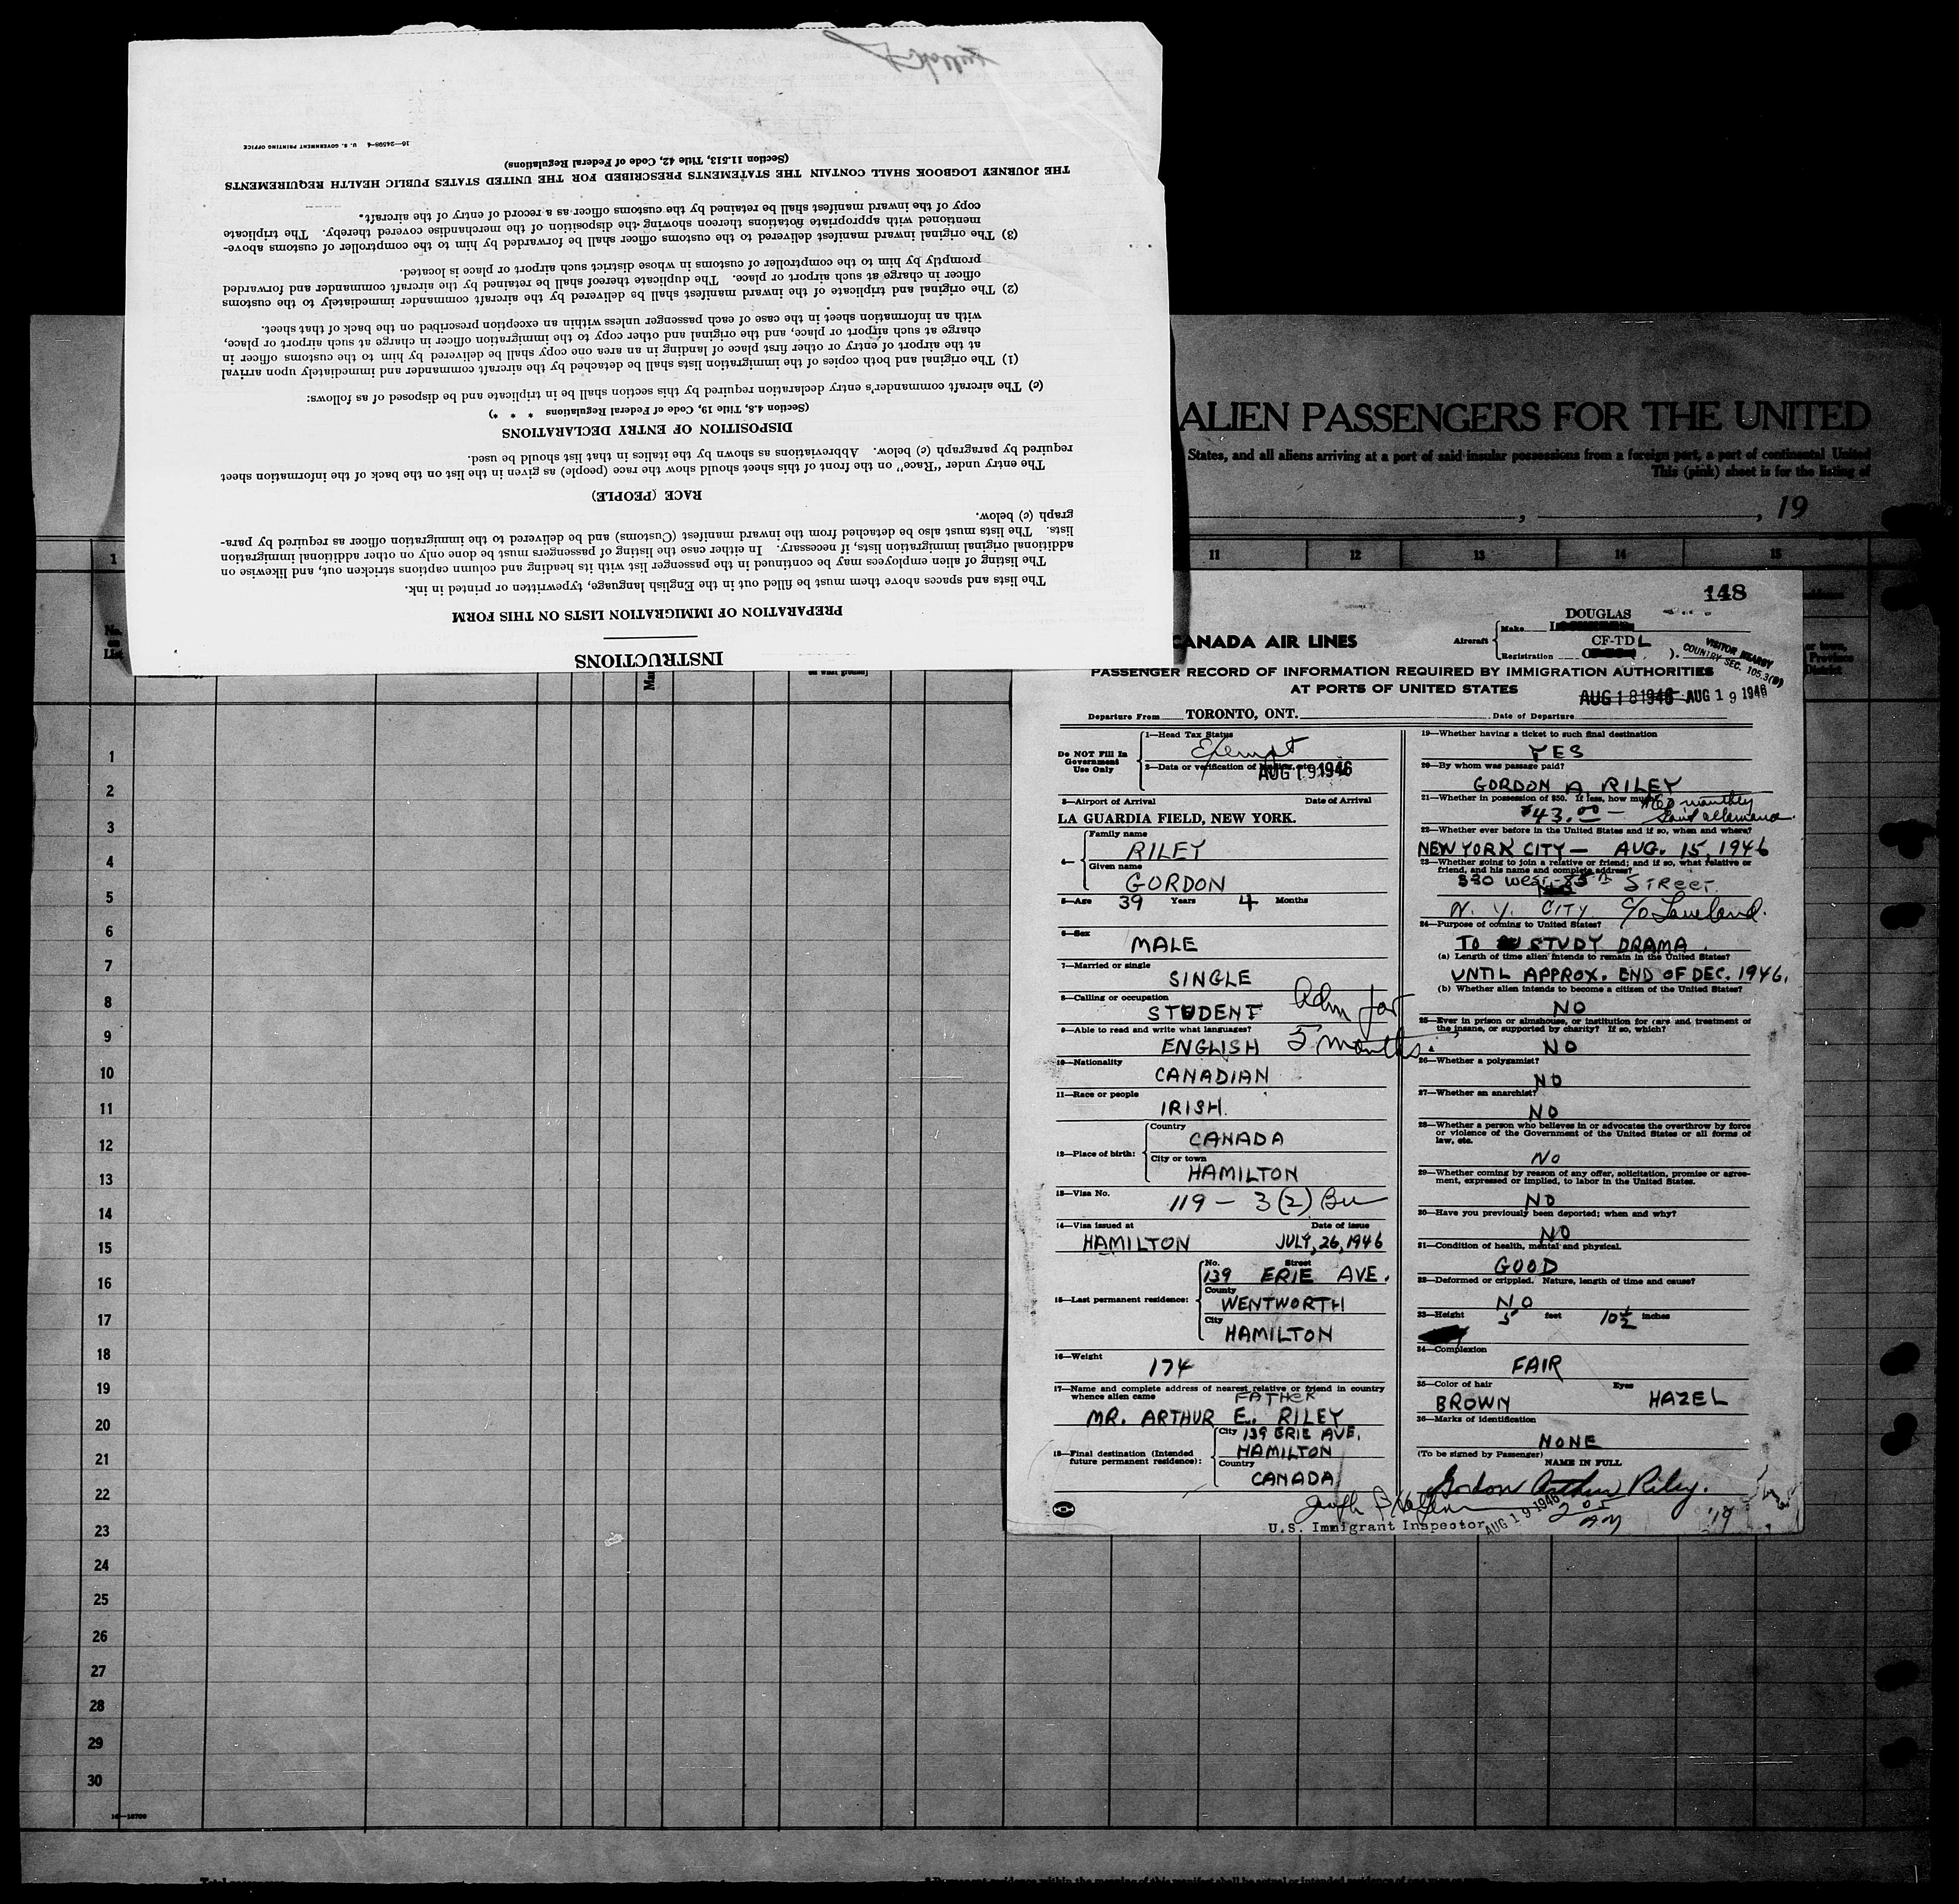 INSTRUCTIONS
PREPARATION OF IMMIGRATION LISTS ON THIS FORM
The lists and spaces above them must be filled out in the English language, typewritten or printed in ink.
The listing of alien employees may be continued in the passenger list with its heading and column captions stricken out, and likewise on
additional original immigration lists, if necessary. In either case the listing of passengers must be done only on other additional immigration
lists. The lists must also be detached from the inward manifest (Customs) and be delivered to the immigration officer as required by para-
graph (c) below.
RACE (PEOPLE)
The entry under "Race" on the front of this sheet should show the race (people) as given in the list on the back of the information sheet
required by paragraph (c) below. Abbreviations as shown by the italics in that list should be used.
DISPOSITION OF ENTRY DECLARATIONS
(Section 4.8, Title 19, Code of Federal Regulations * * *)
(c) The aircraft commander's entry declaration required by this section shall be in triplicate and be disposed of as follows:
(1) The original and both copies of the immigration lists shall be detached by the aircraft commander and immediately upon arrival
at the airport of entry or other first place of landing in an area one copy shall be delivered by him to the customs officer in
charge at such airport or place, and the original and other copy to the immigration officer in charge at such airport or place,
with an information sheet in the case of each passenger unless within an exception prescribed on the back of that sheet.
(2) The original and triplicate of the inward manifest shall be delivered by the aircraft commander immediately to the customs
officer in charge at such airport or place. The duplicate thereof shall be retained by the aircraft commander and forwarded
promptly by him to the comptroller of customs in whose district such airport or place is located.
(3) The original inward manifest delivered to the customs officer shall be forwarded by him to the comptroller of customs above-
mentioned with appropriate notations thereon showing the disposition of the merchandise covered thereby. The triplicate
copy of the inward manifest shall be retained by the customs officer as a record of entry of the aircraft.
THE JOURNEY LOGBOOK SHALL CONTAIN THE STATEMENTS PRESCRIBED FOR THE UNITED STATES PUBLIC HEALTH REQUIREMENTS
(Section 11.513, Title 42, Code of Federal Regulations)
16—24598-4 U. S. GOVERNMENT PRINTING OFFICE
ALIEN PASSENGERS FOR THE UNITED
States, and all aliens arriving at a port of said insular possessions from a foreign port, a part of continental United
This (pink) sheet is for the listing of
, , 19
1 11 12 13 14 15
No. on List
148
CANADA AIR LINES
Aircraft Make DOUGLAS
Registration CF-TDL ).
VISITOR NEARBY
COUNTRY SEC. 105.3(B)
PASSENGER RECORD OF INFORMATION REQUIRED BY IMMIGRATION AUTHORITIES
AT PORTS OF UNITED STATES
AUG 18 1946 AUG 19 1946
Departure From TORONTO, ONT. Date of Departure
Do NOT Fill In
Government
Use Only
1—Head Tax Status
Exempt
2—Data or verification of
AUG 19 1946
3—Airport of Arrival Date of Arrival
LA GUARDIA FIELD, NEW YORK.
4—Family name
RILEY
Given name
GORDON
5—Age 39 Years 4 Months
6—Sex
MALE
7—Married or single
SINGLE
8—Calling or occupation
STUDENT Adm for
9—Able to read and write what languages?
ENGLISH 5 months.
10—Nationality
CANADIAN
11—Race or people
IRISH.
12—Place of birth: Country
CANADA
City or town
HAMILTON
13—Visa No.
119 - 3(2)
14—Visa issued at Date of issue
HAMILTON JULY, 26, 1946
15—Last permanent residence: No. Street
139 ERIE AVE.
County
WENTWORTH
City
HAMILTON
16—Weight
174
17—Name and complete address of nearest relative or friend in country
whence alien came FATHER
MR. ARTHUR E. RILEY
City 139 ERIE AVE.
18—Final destination (Intended
future permanent residence):
HAMILTON
Country
CANADA
19—Whether having a ticket to such final destination
YES
20—By whom was passage paid?
GORDON A. RILEY
21—Whether in possession of $50. If less, how much?
$43.00 — monthly
22—Whether ever before in the United States and if so, when and where?
NEW YORK CITY — AUG. 15, 1946
23—Whether going to join a relative or friend; and if so, what relative or
friend, and his name and complete address?
330 WEST 85th STREET.
N. Y. CITY c/o Loveland.
24—Purpose of coming to United States?
TO STUDY DRAMA.
(a) Length of time alien intends to remain in the United States?
UNTIL APPROX. END OF DEC. 1946.
(b) Whether alien intends to become a citizen of the United States?
NO
25—Ever in prison or almshouse, or institution for care and treatment of
the insane, or supported by charity? If so, which?
NO
26—Whether a polygamist?
NO
27—Whether an anarchist?
NO
28—Whether a person who believes in or advocates the overthrow by force
or violence of the Government of the United States or all forms of
law, etc.
NO
29—Whether coming by reason of any offer, solicitation, promise or agree-
ment, expressed or implied, to labor in the United States.
NO
30—Have you previously been deported; when and why?
NO
31—Condition of health, mental and physical.
GOOD
32—Deformed or crippled. Nature, length of time and cause?
NO
33—Height 5 feet 10½ inches
34—Complexion
FAIR
35—Color of hair Eyes
BROWN HAZEL
36—Marks of identification
NONE
(To be signed by Passenger) NAME IN FULL
Gordon Arthur Riley.
U.S. Immigrant Inspector
AUG 19 1946
2 05 AM
19
1
2
3
4
5
6
7
8
9
10
11
12
13
14
15
16
17
18
19
20
21
22
23
24
25
26
27
28
29
30